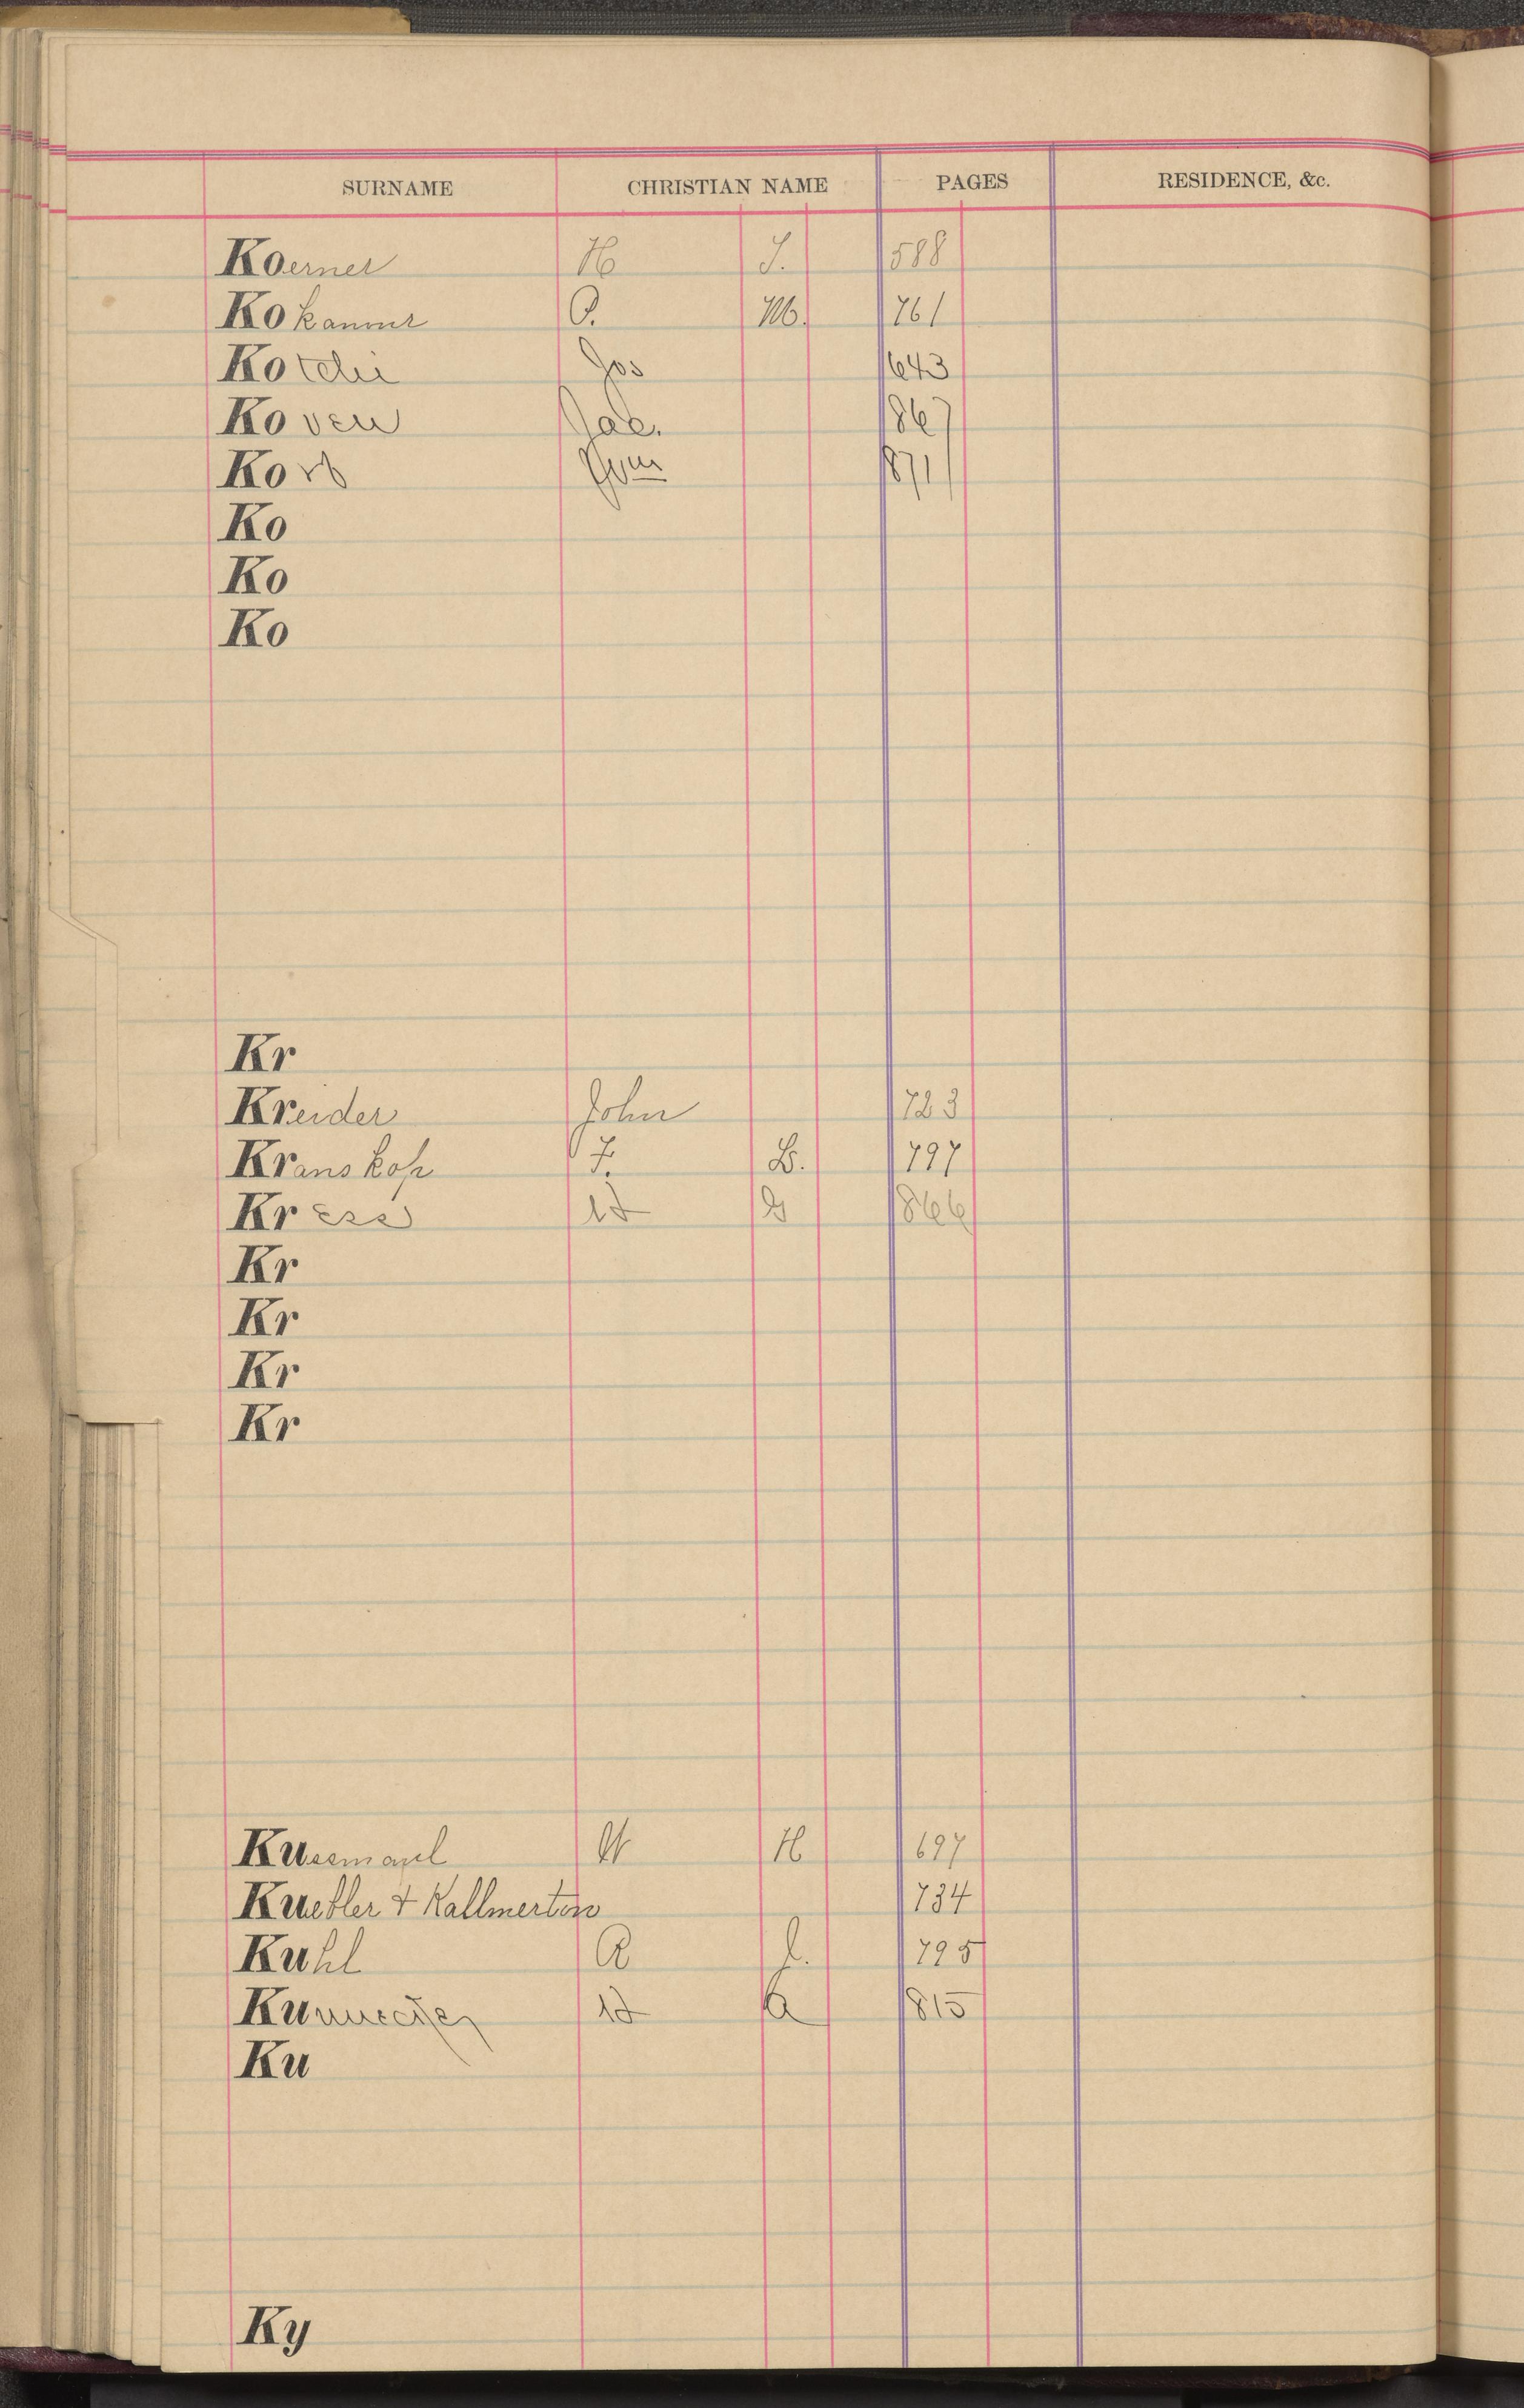 SURNAME CHRISTIAN NAME PAGES RESIDENCE, &c.
Koerner H J. 588
Kokanour P. M. 761
Kotchi Jos 643
Koven Jac. 867
Korb 871
Ko
Ko
Ko
Kr
Kreider John 723
Kranskop F. B. 797
Kress W G 866
Kr
Kr
Kr
Kr
Kussmaul W H 697
Kuebler & Kallmerten 734
Kuhl A L. 795
Ku W A 815
Ku
Ky